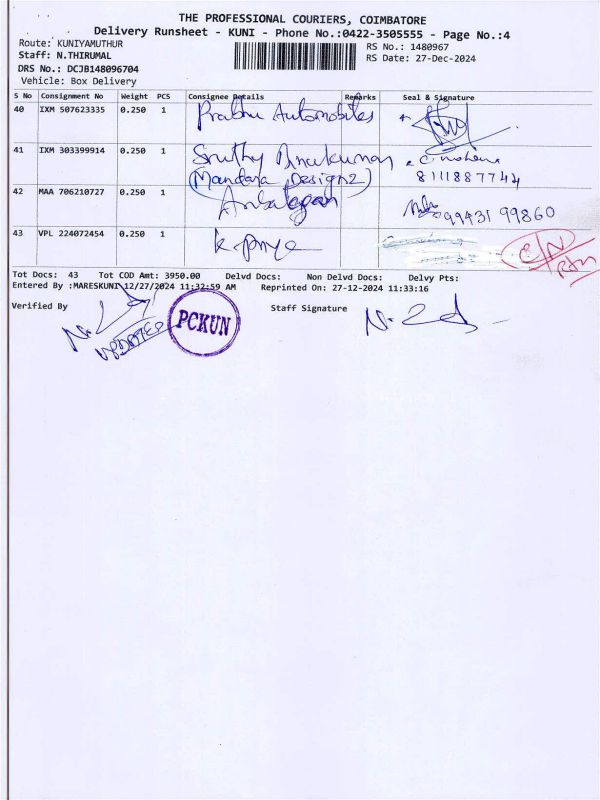 THE PROFESSIONAL COURIERS, COIMBATORE
Delivery Runsheet - KUNI - Phone No.:0422-3505555 - Page No.:4
Route: KUNIYAMUTHUR
RS No.: 1480967
Staff: N.THIRUMAL
RS Date: 27-Dec-2024
DRS No.: DCJB148096704
Vehicle: Box Delivery
S No Consignment No Weight PCS Consignee Details Remarks Seal & Signature
40 IXM 507623335 0.250 1 Prabhu Automobiles
41 IXM 303399914 0.250 1 Sruthy
(Mandara Designz) 8111887744
42 MAA 706210727 0.250 1 99431 99860
43 VPL 224072454 0.250 1 k priya
Tot Docs: 43 Tot COD Amt: 3950.00 Delvd Docs: Non Delvd Docs: Delvy Pts:
Entered By :MARESKUNI 12/27/2024 11:32:59 AM Reprinted On: 27-12-2024 11:33:16
Verified By
Staff Signature
PCKUN
UPDATED